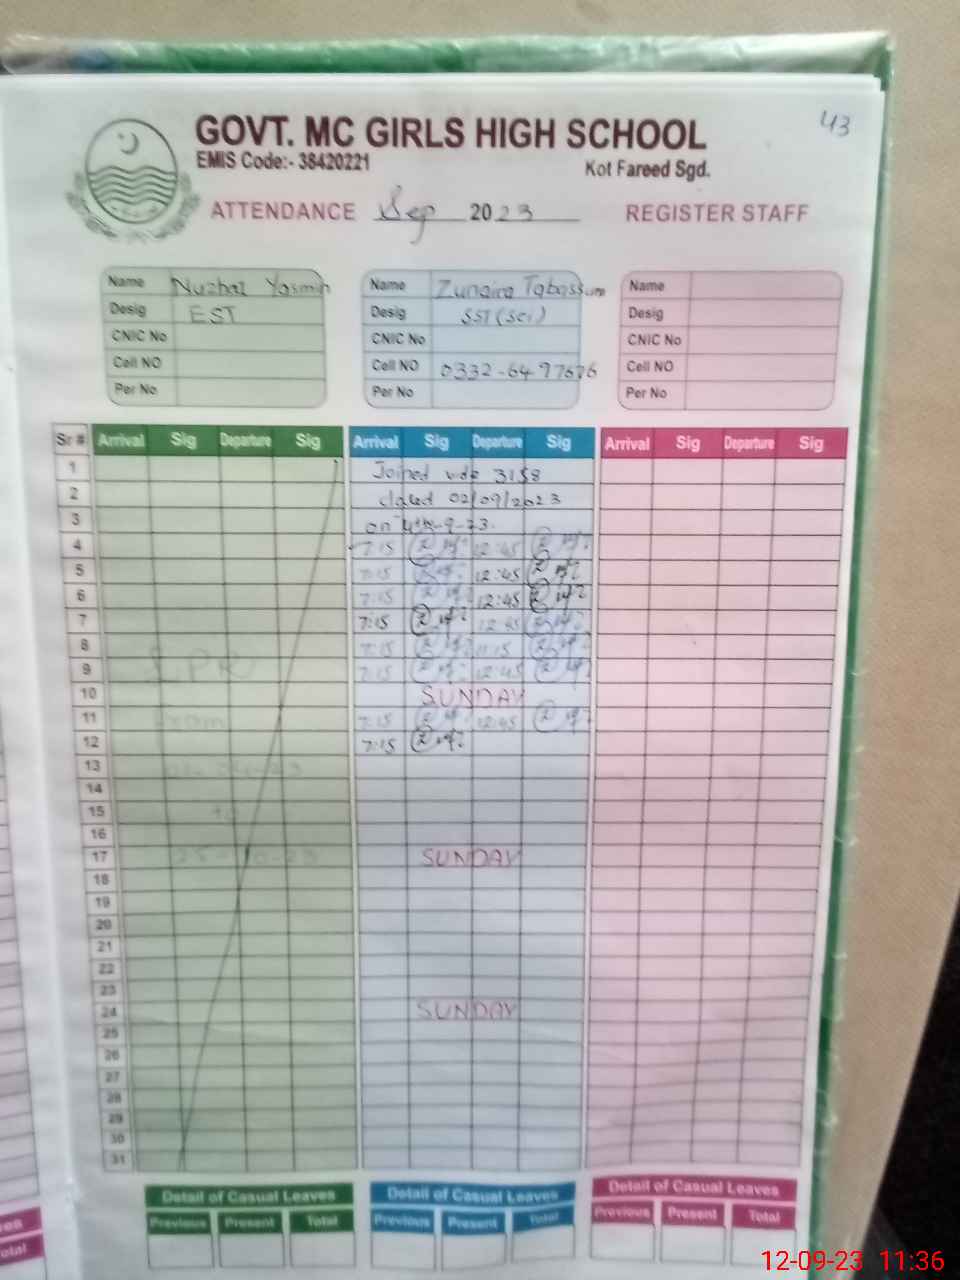 43
GOVT. MC GIRLS HIGH SCHOOL
EMIS Code:- 38420221
Kot Fareed Sgd.
ATTENDANCE Sep 2023 REGISTER STAFF
Name Nuzhat Yasmin
Desig EST
CNIC No
Cell NO
Per No
Name Zunaira Tabassum
Desig SST (Sci)
CNIC No
Cell NO 0332-6497676
Per No
Name
Desig
CNIC No
Cell NO
Per No
Sr # Arrival Sig Departure Sig Arrival Sig Departure Sig Arrival Sig Departure Sig
1 Joined vide 3158
2 dated 02/09/2023
3 on 4th-9-23.
4 7:15 12:45
5 7:15 12:45
6 7:15 12:45
7 7:15 12:45
8 7:15 11:15
9 LPR 7:15 12:45
10 SUNDAY
11 From 7:15 12:45
12 7:15
13
14
15 to
16
17 25-10-23 SUNDAY
18
19
20
21
22
23
24 SUNDAY
25
26
27
28
29
30
31
Detail of Casual Leaves
Previous Present Total
Detail of Casual Leaves
Previous Present Total
Detail of Casual Leaves
Previous Present Total
otal
12-09-23 11:36